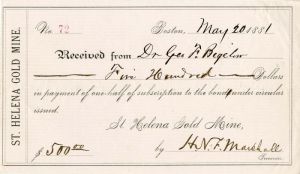 ST. HELENA GOLD MINE.
No. 72 Boston, May 20 1881
Received from Dr Geo F Bigelow
Five Hundred Dollars
in payment of one-half of subscription to the bonds under circular
issued.
St Helena Gold Mine,
$500.00 by H.N.F. Marshall
Treasurer.